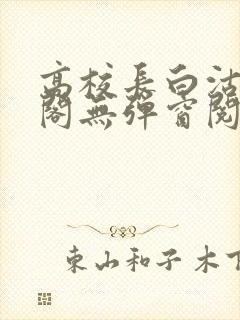 高校長白沽
閣無彈窗閱
東山和子木下